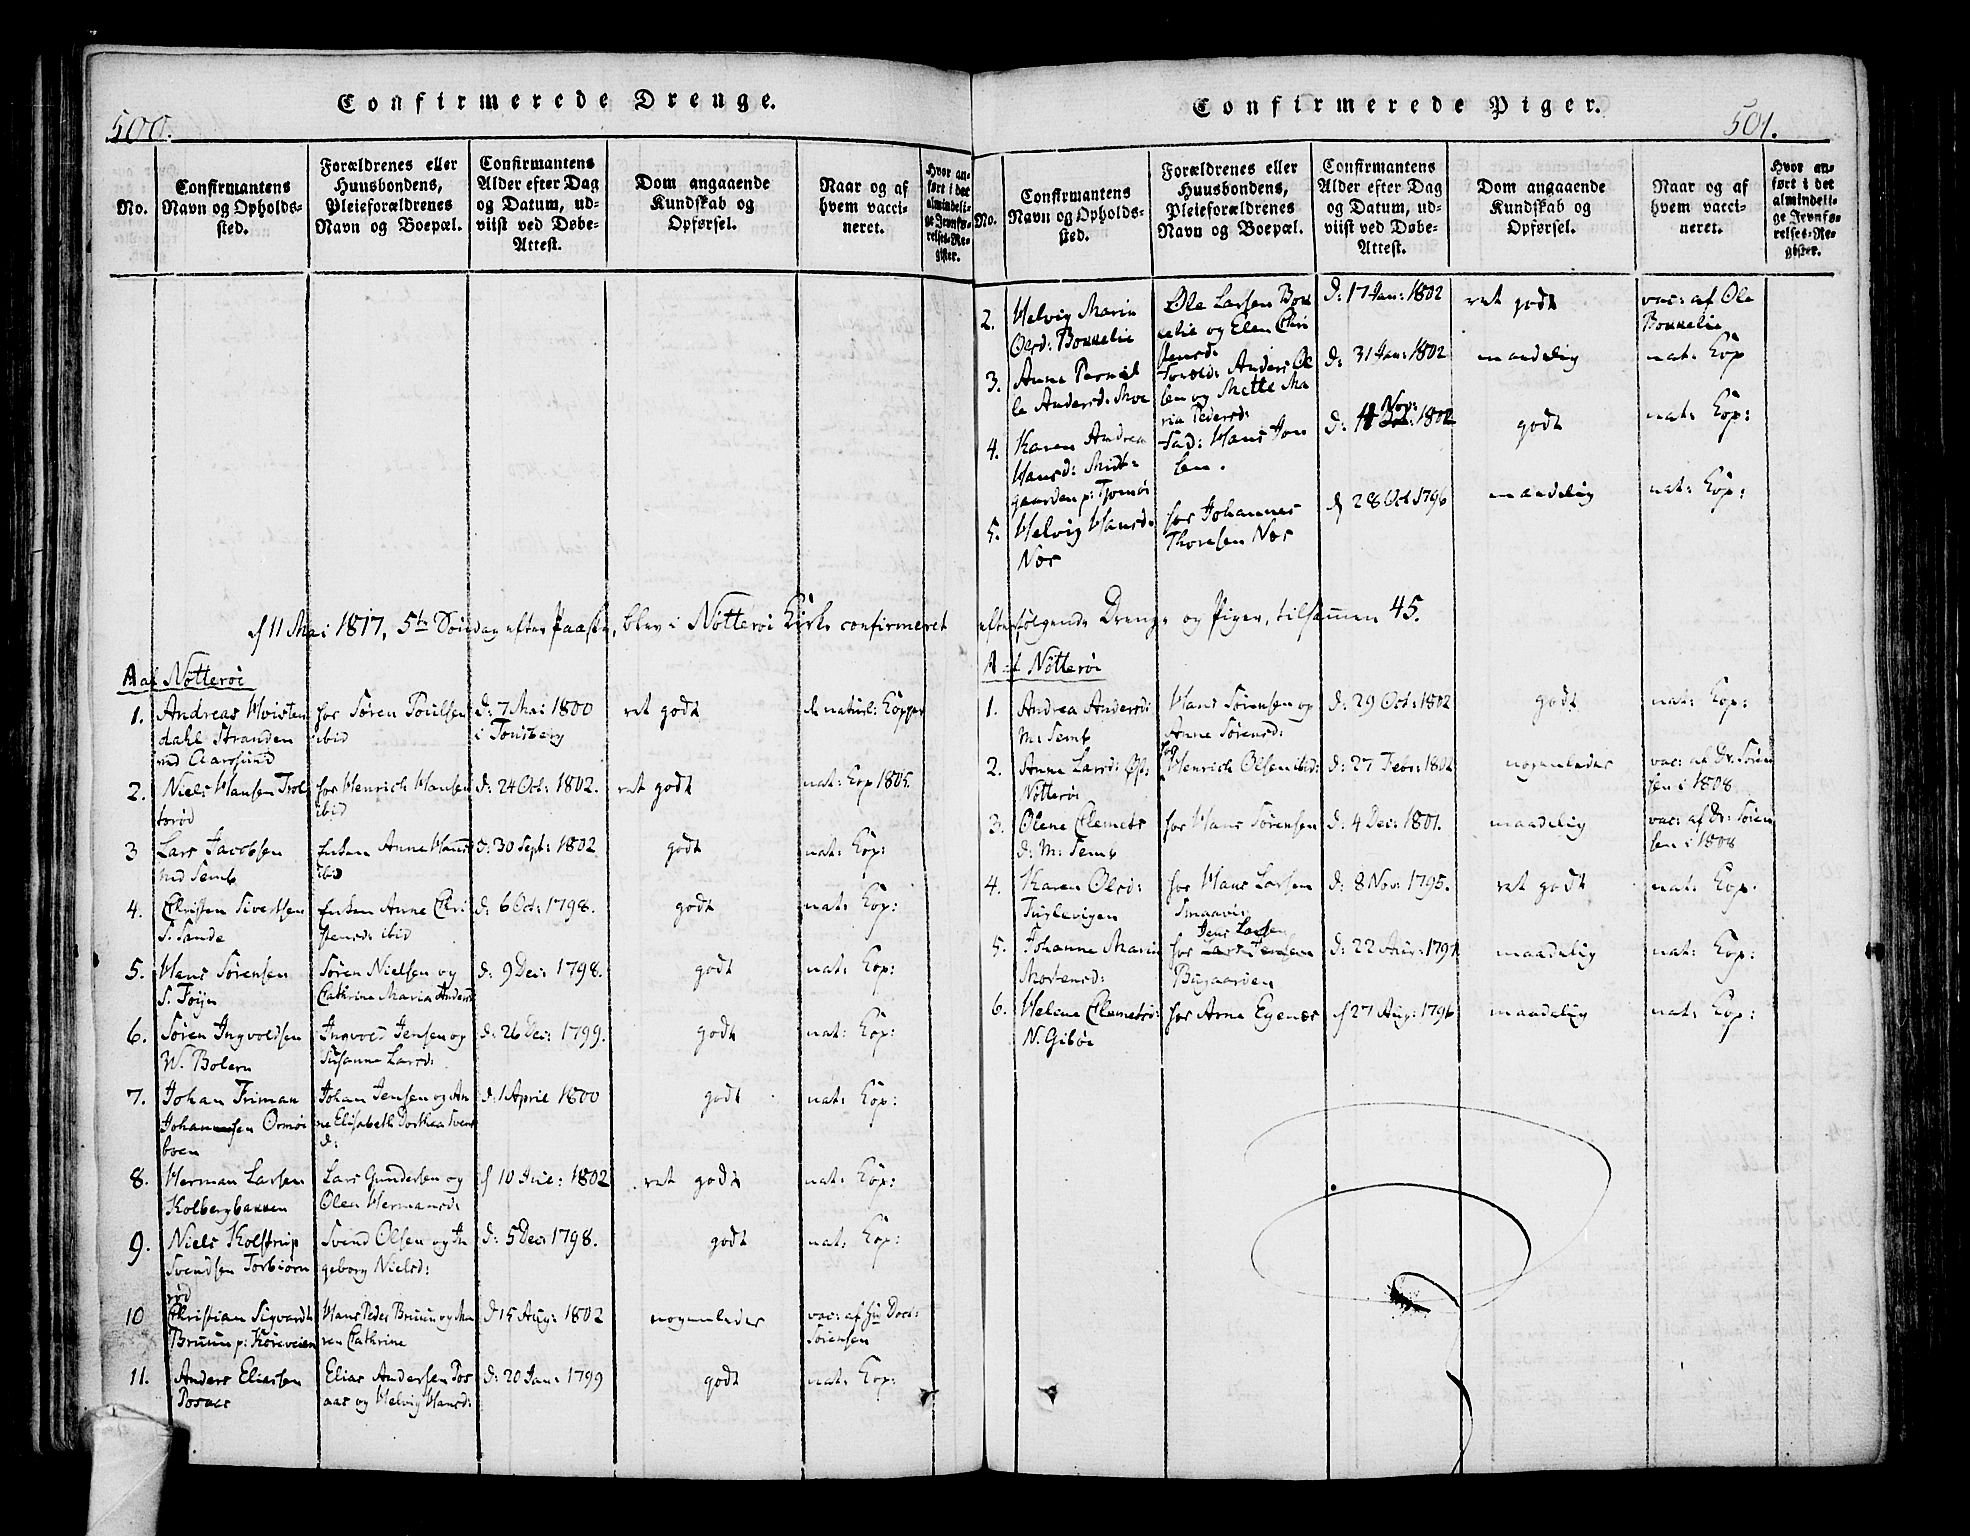 500.
Confirmerede Drenge.
No.
Confirmantens
Navn og Opholds-
sted.
Forældrenes eller
Huusbondens,
Pleieforældrenes
Navn og Boepæl.
Confirmantens
Alder efter Dag
og Datum, ud-
viist ved Døbe-
Attest.
Dom angaaende
Kundskab og
Opførsel.
Naar og af
hvem vacci-
neret.
Hvor an-
ført i det
almindeli-
ge Jevnfø-
relses-Re-
gister.
d 11 Mai 1817, 5te Søndag efter Paaske, blev i Nøtterøi Kirke confirmeret
A af Nøtterøi
1. Andreas Hvisten
dahl Stranden
ved Aarøsund
hos Søren Poulsen
ibid
d: 7 Mai 1800
i Tønsberg
ret godt
de naturl: Kopper
2. Niels Hansen Trol
lerød
hos Henrich Hansen
ibid
d: 24 Oct: 1802.
ret godt
nat: Kop 1805.
3 Lars Jacobsen
ved Semb
Enken Anne Hansd
ibid
d: 30 Sept: 1802
godt
nat: Kop:
4. Christen Sivertsen
S. Sande
Enken Anne Chri
stensd: ibid
d: 6 Oct: 1798.
godt
nat: Kop:
5. Hans Sørensen
S. Føyn
Søren Nielsen og
Cathrine Maria Andersd
d: 9 Dec: 1798.
godt
nat: Kop:
6. Søren Ingvoldsen
W. Bolern
Ingvold Jensen og
Susanne Larsd:
d: 26 Dec: 1799.
godt
nat: Kop:
7. Johan Friman
Johannsen Ormøi
boen
Johan Jensen og An
ne Elisabeth Dorthea Svend
d:
d: 1 April 1800
godt
nat: Kop:
8. Herman Larsen
Kolbergbakken
Lars Gundersen og
Olea Hermansd:
d 10 Jul: 1802
ret godt
nat: Kop:
9. Niels Kolstrup
Svendsen Torbiørn
rød
Svend Olsen og In
geborg Nielsd:
d: 5 Dec: 1798.
godt
nat: Kop:
10 Christian Sigvardt
Bruun p: Kjøreveien
Hans Peder Bruun og Ma
ren Cathrine
d 15 Aug: 1802
nogenledes
vac: af Doct:
Sørensen
11. Anders Eliassen
Elias Andersen
aas og Helvig Hansd:
d: 20 Jan: 1799
godt
nat: Kop:
Confirmerede Piger.
501.
No.
Confirmantens
Navn og Opholds-
sted.
Forældrenes eller
Huusbondens,
Pleieforældrenes
Navn og Boepæl.
Confirmantens
Alder efter Dag
og Datum, ud-
viist ved Døbe-
Attest.
Dom angaaende
Kundskab og
Opførsel.
Naar og af
hvem vacci-
neret.
Hvor an-
ført i det
almindeli-
ge Jevnfø-
relses-Re-
gister.
2. Helvig Maria
Olsd: Bokkelie
Ole Larsen Bok
kelie og Elen Chri
stensd:
d: 17 Jan: 1802
ret godt
vac: af Ole
Bokkelie
3. Anne Pernil
le Andersd: Moe
Foræld: Anders Ol
sen og Mette Ma
ria Pedersd:
d: 31 Jan: 1802
maadelig
nat: Kop
4. Karen Andrea
Hansd: Midt-
gaarden p: Tjømøi
Fad: Hans Jon
sen.
Nov:
1802
godt
nat: Kop:
5. Helvig Hansd:
Næs
hos Johannes
Thoresen Næs
d 28 Oct 1796
maadelig
nat: Kop:
efterfølgende Drenge og Piger, tilsammen 45.
A af Nøtterøi
1. Andrea Andersd:
M: Semb
Hans Sørensen og
Anne Sørensd:
d: 29 Oct: 1802
godt
nat: Kop:
2. Anne Larsd: Øst:
Nøtterøi
hos Henrich Olsen ibid:
d: 27 Febr: 1802
nogenledes
vac: af Dr. Søren
sen i 1808.
3. Olene Clemets
d: M: Semb
hos Hans Sørensen
d: 4 Dec: 1801.
maadelig
vac: af Dr: Søren
sen i 1808
4. Karen Olsd:
Fuglevigen
hos Hans Larsen
Smaavig
d: 8 Nov: 1795.
ret godt
nat: Kop.
5. Johanne Maria
Mortensd:
Jens Larsen
hos Lars Jensen
Bugaarden
d: 22 1797
maadelig
nat: Kop:
6. Helene Clemetsd:
N. Gibøe
hos Arne Egenæs
d 27 Aug: 1796
maadelig
nat: Kop: